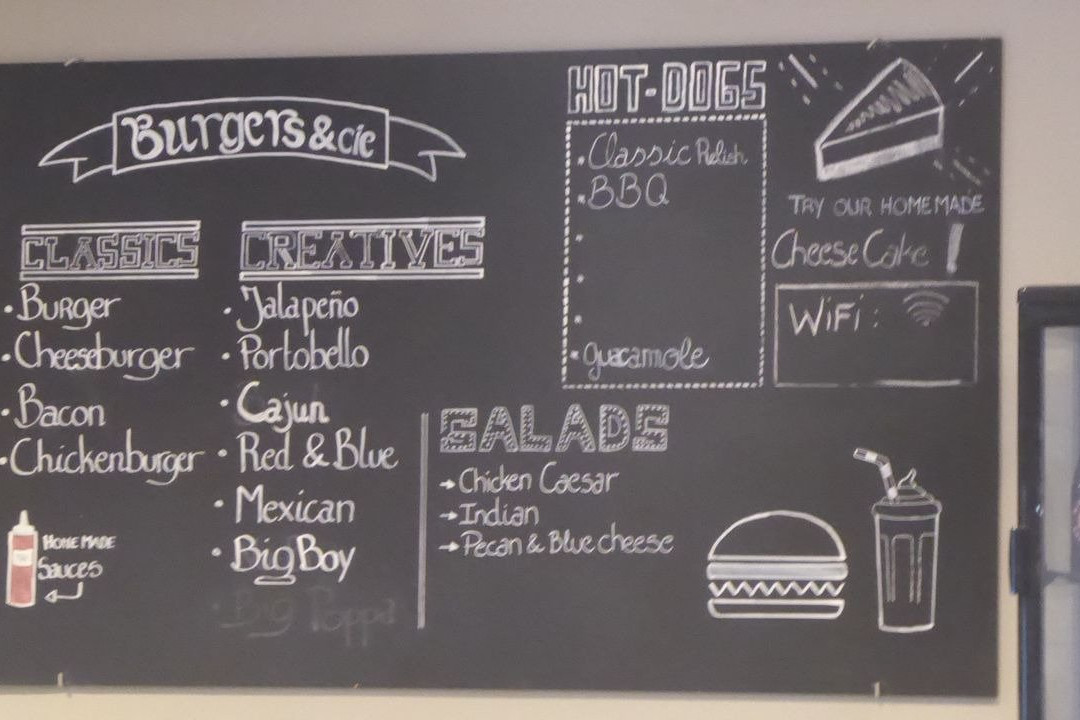 Burgers & cie
CLASSICS
• Burger
• Cheeseburger
• Bacon
• Chickenburger
HOME MADE
Sauces
CREATIVES
• Jalapeño
• Portobello
• Cajun
• Red & Blue
• Mexican
• Big Boy
• Big Poppa
HOT-DOGS
• Classic Relish
• BBQ
•
•
•
• guacamole
SALADS
→ Chicken Caesar
→ Indian
→ Pecan & Blue cheese
TRY OUR HOMEMADE
Cheese Cake !
WiFi :